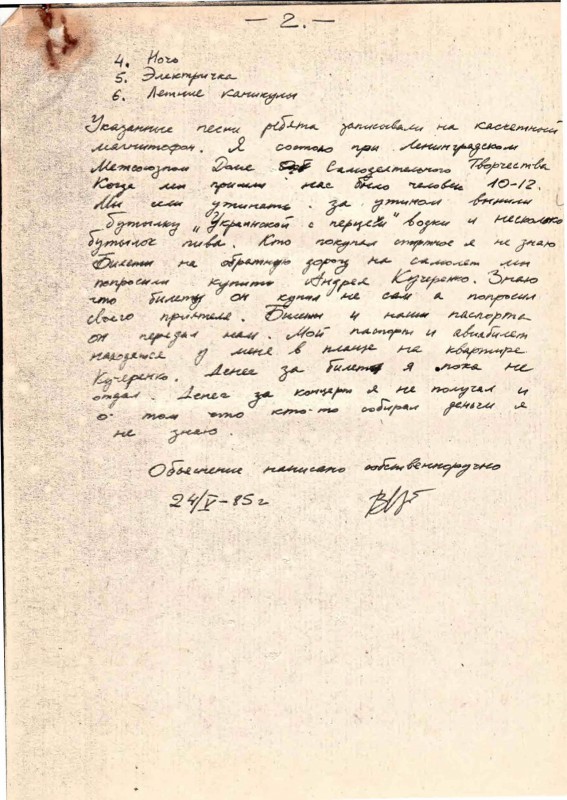 — 2. —
4. Ночь
5. Электричка
6. Летние каникулы
Указанные песни ребята записывали на кассетный
магнитофон. Я состою при Ленинградском
Межсоюзном Доме Самодеятельного Творчества
Когда мы пришли нас было человек 10-12.
Мы сели ужинать. за ужином выпили
бутылку „Украинской с перцем" водки и несколько
бутылок пива. Кто покупал спиртное я не знаю
Билеты на обратную дорогу на самолет мы
попросили купить Андрея Кучеренко. Знаю
что билеты он купил не сам а попросил
своего приятеля. Билеты и наши паспорта
он передал нам. Мой паспорт и авиабилет
находятся у меня в плаще на квартире
Кучеренко. Денег за билеты я пока не
отдал. Денег за концерты я не получал и
о том что кто-то собирал деньги я
не знаю.
Объяснение написано собственноручно
24/V-85г